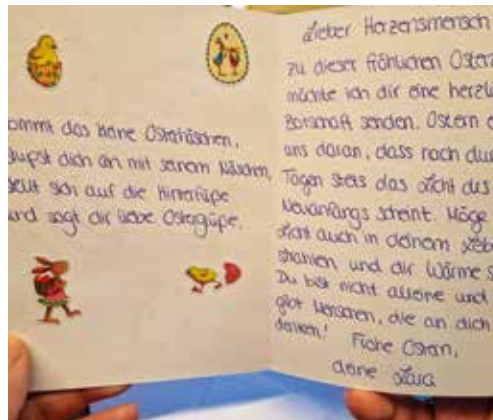 ommt das kleine Osterhäschen,
stupst dich an mit seinem Näschen,
stellt sich auf die Hinterfüße
und sagt dir liebe Ostergrüße.
Lieber Herzensmensch
zu dieser fröhlichen Osterz
möchte ich dir eine herzli
Botschaft senden. Ostern e
uns daran, dass nach dun
Tagen stets das Licht des
Neuanfangs scheint. Möge
Licht auch in deinem Leb
strahlen und dir Wärme s
Du bist nicht alleine und
gibt Menschen, die an dich
denken!
Frohe Ostern,
deine Lara